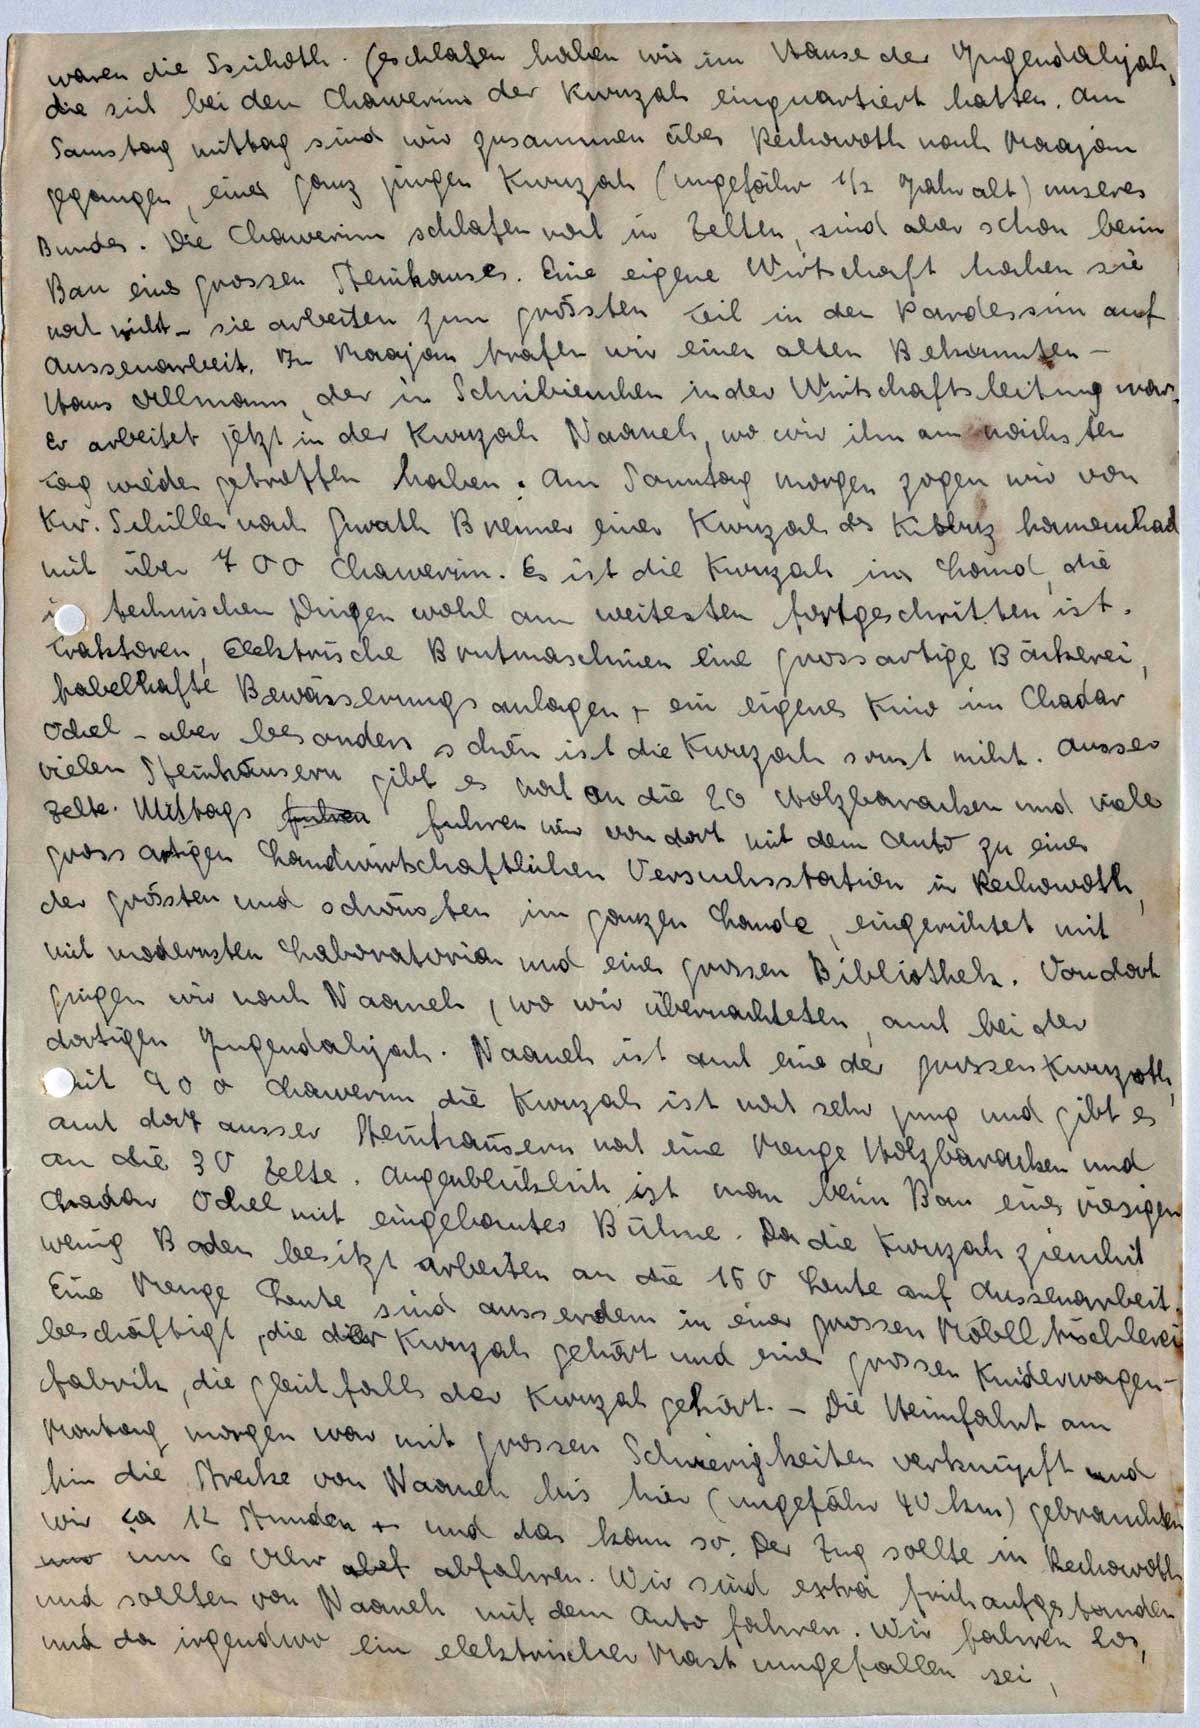 waren die Ssichoth. Geschlafen haben wir im Hause der Jugendalijah,
die sich bei den Chawerim der Kwuzah einquartiert hatten. Am
Samstag mittag sind wir zusammen über Rechowoth nach Maajan
gegangen, einer ganz jungen Kwuzah (ungefähr 1/2 Jahr alt) unseres
Bundes. Die Chawerim schlafen noch in Zelten, sind aber schon beim
Bau eines grossen Steinhauses. Eine eigene Wirtschaft haben sie
noch nicht - sie arbeiten zum grössten Teil in den Pardessim auf
Aussenarbeit. In Maajan trafen wir einen alten Bekannten -
Hans Ollmann, der in Schnibienchen in der Wirtschaftsleitung war.
Er arbeitet jetzt in der Kwuzah Naaneh, wo wir ihn am nächsten
Tag wieder getroffen haben. Am Sonntag morgen zogen wir von
Kw. Schiller nach Giwath Brenner einer Kwuzah des Kibbuz hameuchad
mit über 700 Chawerim. Es ist die Kwuzah im Land, die
in technischen Dingen wohl am weitesten fortgeschritten ist.
Traktoren, Elektrische Brutmaschinen eine grossartige Bäckerei,
fabelhafte Bewässerungsanlagen + ein eigenes Kino im Chadar
Ochel - aber besonders schön ist die Kwuzah sonst nicht. Ausser
vielen Steinhäusern gibt es noch an die 20 Holzbaracken und viele
Zelte. Mittags fuhren fuhren wir von dort mit dem Auto zu einer
grossartigen Landwirtschaftlichen Versuchsstation in Rechowoth,
der grössten und schönsten im ganzen Lande, eingerichtet mit
mit modernsten Laboratorien und einer grossen Bibliothek. Von dort
gingen wir nach Naaneh, wo wir übernachteten, auch bei der
dortigen Jugendalijah. Naaneh ist auch eine der grossen Kwuzoth,
mit 400 Chawerim, die Kwuzah ist noch sehr jung und gibt es
auch dort ausser Steinhäusern noch eine Menge Holzbaracken und
an die 30 Zelte. Augenblicklich ist man beim Bau eines riesigen
Chadar Ochel mit eingebauter Bühne. Da die Kwuzah ziemlich
wenig Boden besitzt arbeiten an die 150 Leute auf Aussenarbeit.
Eine Menge Leute sind ausserdem in einer grossen Möbeltischlerei
beschäftigt, die der Kwuzah gehört und einer grossen Kinderwagen-
fabrik, die gleichfalls der Kwuzah gehört. - Die Heimfahrt am
Montag morgen war mit grossen Schwierigkeiten verknüpft und
hin die Strecke von Naaneh bis hier (ungefähr 40 km) gebrauchten
wir ca 12 Stunden + und das kam so. Der Zug sollte in Rechowoth
um 6 Uhr abfahren. Wir sind extra früh aufgestanden
und sollten von Naaneh mit dem Auto fahren. Wir fahren los,
und da irgendwo ein elektrischer Mast umgefallen sei,